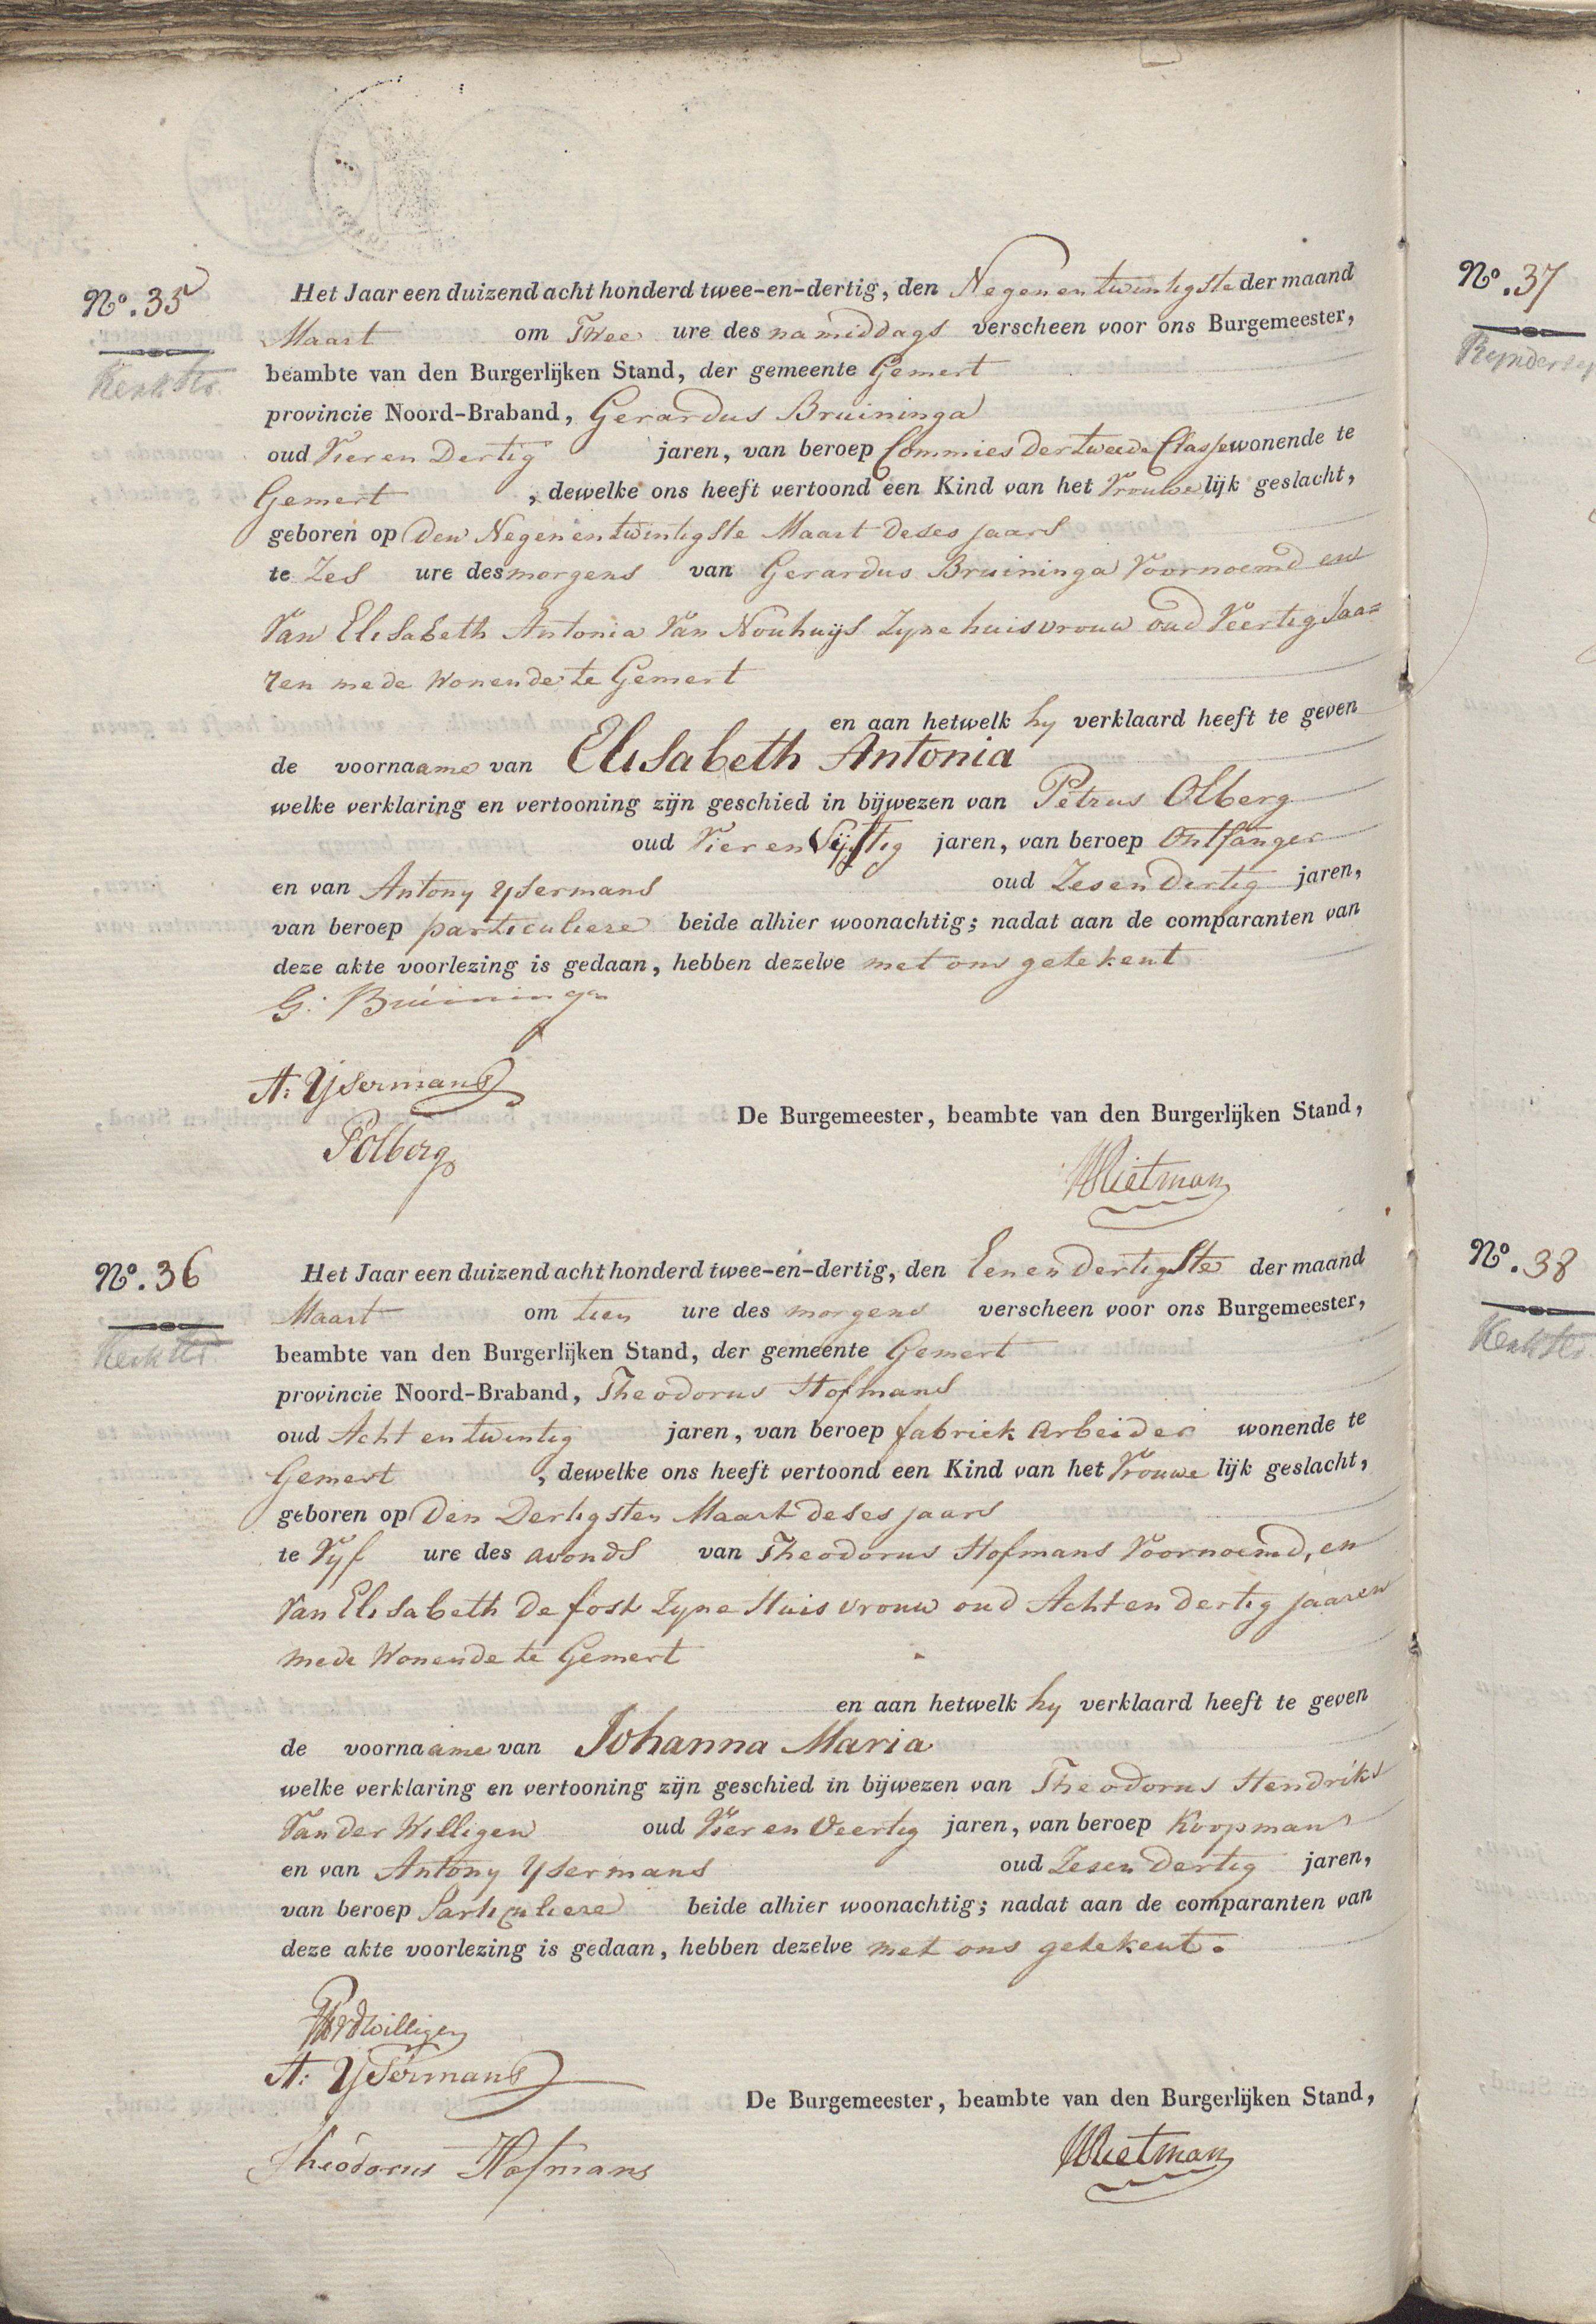 No. 35
Kerkstr.
Het Jaar een duizend acht honderd twee-en-dertig, den Negenentwintigste der maand
Maart om Twee ure des namiddags verscheen voor ons Burgemeester,
beambte van den Burgerlijken Stand, der gemeente Gemert
provincie Noord-Braband, Gerardus Bruininga
oud Vier en Dertig jaren, van beroep Commies der tweede Classe wonende te
Gemert , dewelke ons heeft vertoond een Kind van het Vrouwelijk geslacht,
geboren op den Negenentwintigste Maart deses jaars
te Zes ure des morgens van Gerardus Bruininga Voornoemd en
Van Elisabeth Antonia Van Nouhuijs Zyne huisvrouw oud Veertig Jaa=
ren mede Wonende te Gemert
en aan hetwelk hy verklaard heeft te geven
de voornaame van Elisabeth Antonia
welke verklaring en vertooning zijn geschied in bijwezen van Petrus Olberg
oud Vier en Vijftig jaren, van beroep Ontfanger
en van Antony Ysermans oud Zesendertig jaren,
van beroep particuliere beide alhier woonachtig; nadat aan de comparanten van
deze akte voorlezing is gedaan, hebben dezelve met ons getekent
G. Bruininga
A: Ysermans
POlberg
De Burgemeester, beambte van den Burgerlijken Stand,
Rietman
No. 36
Kerkstr.
Het Jaar een duizend acht honderd twee-en-dertig, den Eenendertigste der maand
Maart om tien ure des morgens verscheen voor ons Burgemeester,
beambte van den Burgerlijken Stand, der gemeente Gemert
provincie Noord-Braband, Theodorus Hofmans
oud Acht en twintig jaren, van beroep fabriek arbeider wonende te
Gemert , dewelke ons heeft vertoond een Kind van het Vrouwe lijk geslacht,
geboren op Den Dertigsten Maart deses jaars
te Vyf ure des avonds van Theodorus Hofmans Voornoemd, en
Van Elisabeth De fost Zyne Huisvrouw oud Acht en dertig jaaren
mede Wonende te Gemert
en aan hetwelk hy verklaard heeft te geven
de voornaame van Johanna Maria
welke verklaring en vertooning zijn geschied in bijwezen van Theodorus Hendriks
Van der Willigen oud Vier en Veertig jaren, van beroep Koopman
en van Antony Ysermans oud Zesen dertig jaren,
van beroep Particuliere beide alhier woonachtig; nadat aan de comparanten van
deze akte voorlezing is gedaan, hebben dezelve met ons getekent.
Willigen
A: Ysermans
Theodorus Hofmans
De Burgemeester, beambte van den Burgerlijken Stand,
Rietman
No. 37
No. 38
Kerkstr.